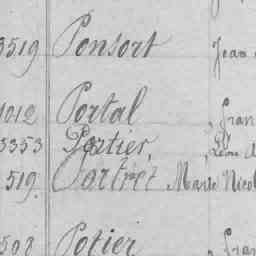 3519 Ponsort Jean
1012 Portal, Fran
3353 Portier, Léon A
519. Portret Marie Nicol
598 Potier, Fran